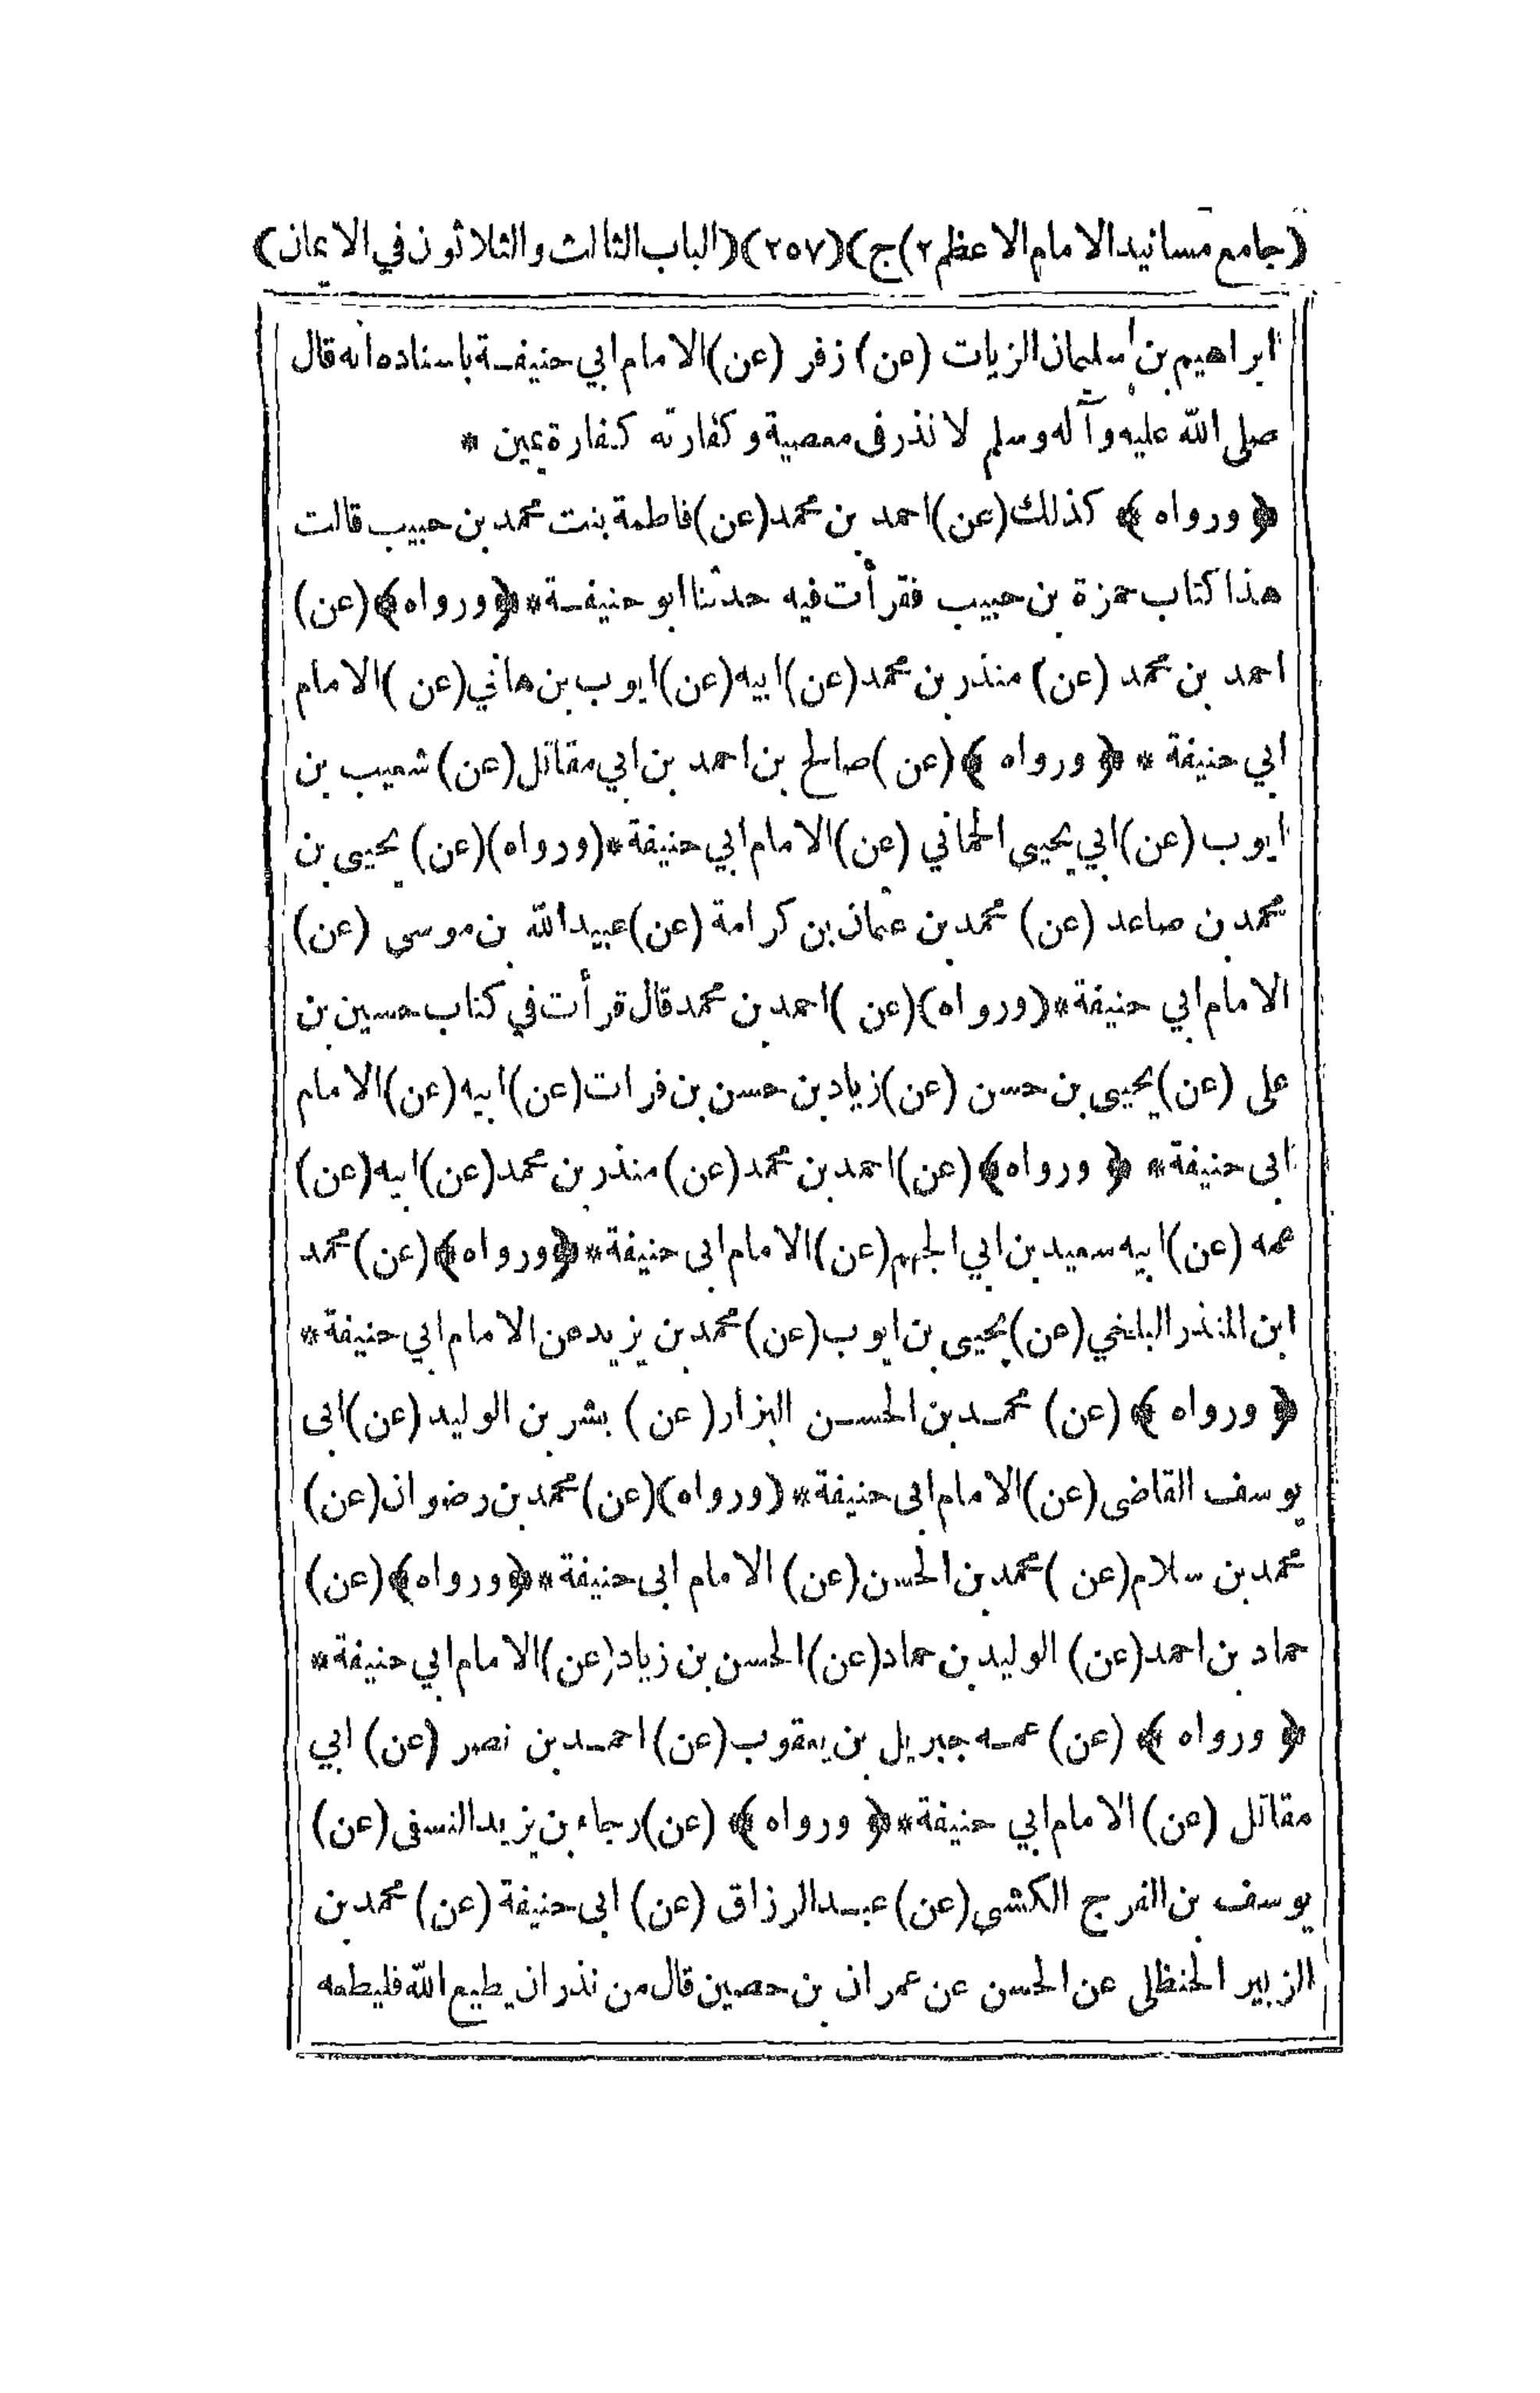 (جامع مسانيد الامام الاعظم ٢) ج) (٢٥٧) (الباب الثالث والثلاثون في الايمان)
ابراهيم بن سليمان الزيات (عن) زفر (عن) الامام ابي حنيفة باسناده انه قال
صلى الله عليه وآله وسلم لا نذر فى معصية وكفارته كفارة يمين *
﴿ ورواه ﴾ كذلك (عن) احمد بن محمد (عن) فاطمة بنت محمد بن حبيب قالت
هذا كتاب حمزة بن حبيب فقرأت فيه حدثنا ابو حنيفة * ﴿ ورواه ﴾ (عن)
احمد بن محمد (عن) منذر بن محمد (عن) ابيه (عن) ايوب بن هاني (عن) الامام
ابي حنيفة * ﴿ ورواه ﴾ (عن) صالح بن احمد بن ابي مقاتل (عن) شعيب بن
ايوب (عن) ابي يحيى الحماني (عن) الامام ابي حنيفة * (ورواه) (عن) يحيى بن
محمد بن صاعد (عن) محمد بن عثمان بن كرامة (عن) عبيد الله بن موسى (عن)
الامام ابي حنيفة * (ورواه) (عن) احمد بن محمد قال قرأت في كتاب حسين بن
على (عن) يحيى بن حسن (عن) زياد بن حسن بن فرات (عن) ابيه (عن) الامام
ابى حنيفة * ﴿ ورواه ﴾ (عن) احمد بن محمد (عن) منذر بن محمد (عن) ابيه (عن)
عمه (عن) ابيه سعيد بن ابي الجهم (عن) الامام ابى حنيفة * ﴿ ورواه ﴾ (عن) محمد
ابن المنذر البلخي (عن) يحيى بن ايوب (عن) محمد بن يزيد عن الامام ابي حنيفة *
﴿ ورواه ﴾ (عن) محمد بن الحسن البزار (عن) بشر بن الوليد (عن) ابى
يوسف القاضى (عن) الامام ابى حنيفة * (ورواه) (عن) محمد بن رضوان (عن)
محمد بن سلام (عن) محمد بن الحسن (عن) الامام ابى حنيفة * ﴿ ورواه ﴾ (عن)
حماد بن احمد (عن) الوليد بن حماد (عن) الحسن بن زياد (عن) الامام ابي حنيفة *
﴿ ورواه ﴾ (عن) عمه جبريل بن يعقوب (عن) احمد بن نصر (عن) ابي
مقاتل (عن) الامام ابي حنيفة * ﴿ ورواه ﴾ (عن) رجاء بن يزيد النسفى (عن)
يوسف بن الفرج الكشي (عن) عبد الرزاق (عن) ابى حنيفة (عن) محمد بن
الزبير الحنظلى عن الحسن عن عمران بن حصين قال من نذر ان يطيع الله فليطعه